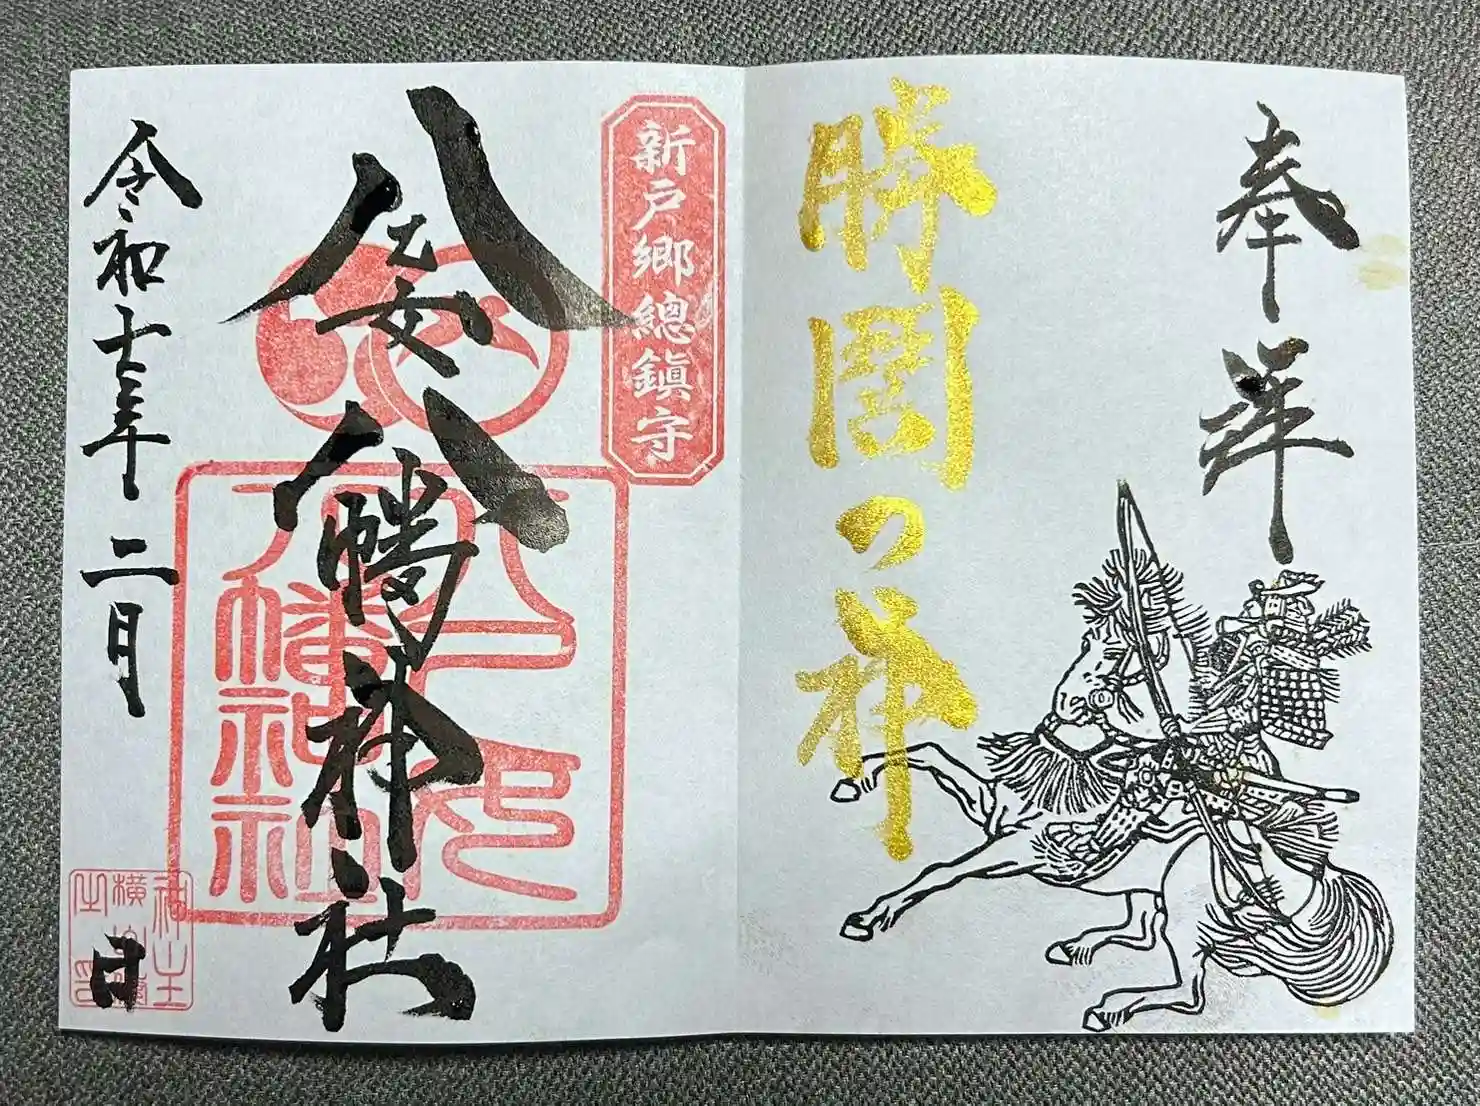 奉拝
勝鬨の神
新戸郷總鎮守
八幡神社
八幡神社之印
令和七年二月 日